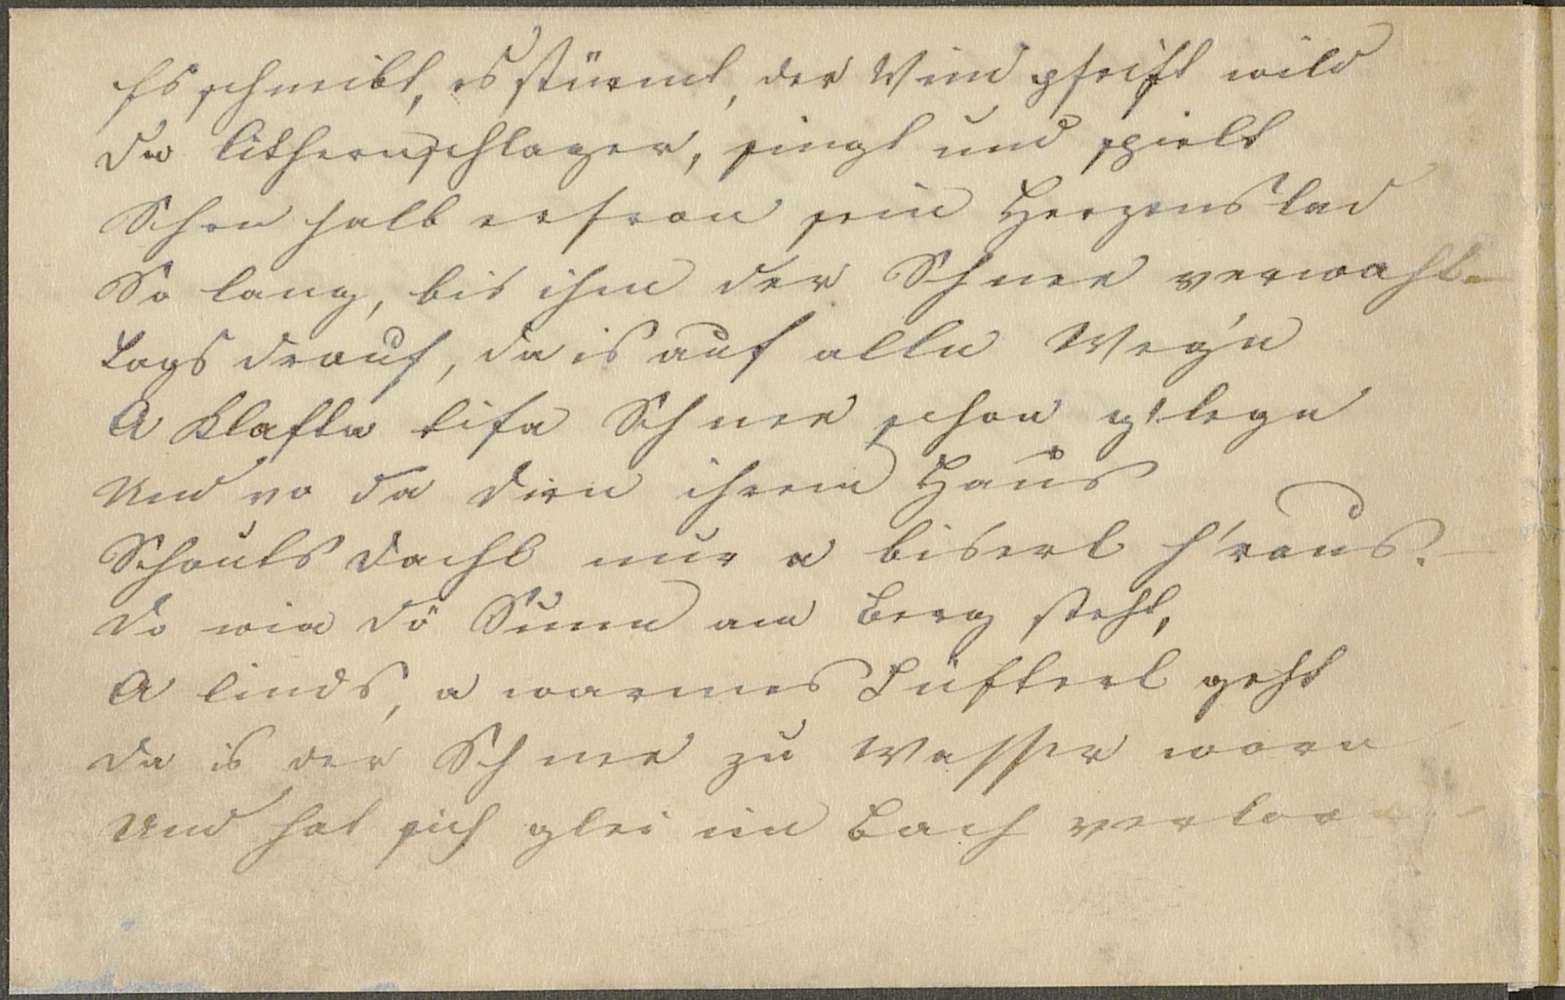 Es schneibt, es stürmt, der Wind pfeift wild
Da Cithernschlager, singt und spielt
Schon halb erfron sein Herzenslad
So lang, bis ihm der Schnee verwaht.
Tags drauf, da is auf alln Weg'n
A Klafta tifa Schnee schon g'legn
Und vo da Dirn ihrem Haus
Schauts Dachl nur a biserl h'raus.
Do wia dö Sunn am Berg steht,
A linds, a warmes Lüfterl geht
Da is der Schnee zu Wasser worn
Und hat sich glei im Bach verlor